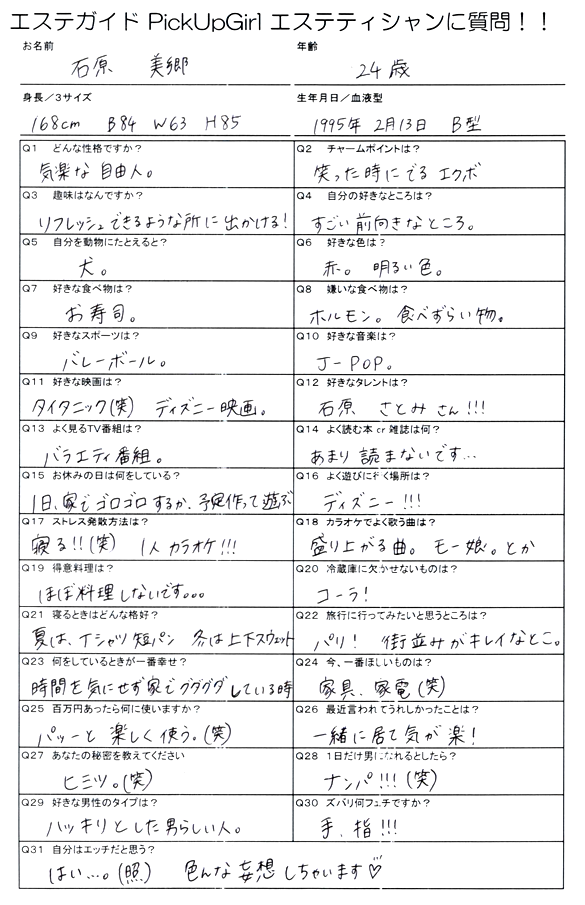 エステガイド PickUpGirl エステティシャンに質問！！
お名前 年齢
石原 美郷 24歳
身長／3サイズ 生年月日／血液型
168cm B84 W63 H85 1995年 2月13日 B型
Q1 どんな性格ですか？ Q2 チャームポイントは？
気楽な自由人。 笑った時にでる エクボ
Q3 趣味はなんですか？ Q4 自分の好きなところは？
リフレッシュできるような所に出かける！ すごい前向きなところ。
Q5 自分を動物にたとえると？ Q6 好きな色は？
犬。 赤。 明るい色。
Q7 好きな食べ物は？ Q8 嫌いな食べ物は？
お寿司。 ホルモン。 食べずらい物。
Q9 好きなスポーツは？ Q10 好きな音楽は？
バレーボール。 J-POP。
Q11 好きな映画は？ Q12 好きなタレントは？
タイタニック(笑) ディズニー映画。 石原 さとみ さん!!!
Q13 よく見るTV番組は？ Q14 よく読む本 or 雑誌は何？
バラエティ番組。 あまり 読まないです…
Q15 お休みの日は何をしている？ Q16 よく遊びに行く場所は？
1日、家でゴロゴロするか、予定作って遊ぶ ディズニー!!!
Q17 ストレス発散方法は？ Q18 カラオケでよく歌う曲は？
寝る!!(笑) 1人カラオケ!!! 盛り上がる曲。 モー娘。とか
Q19 得意料理は？ Q20 冷蔵庫に欠かせないものは？
ほぼ料理しないです。。。 コーラ！
Q21 寝るときはどんな格好？ Q22 旅行に行ってみたいと思うところは？
夏は、Tシャツ短パン 冬は上下スウェット パリ！ 街並みがキレイなとこ。
Q23 何をしているときが一番幸せ？ Q24 今、一番ほしいものは？
時間を気にせず家でグダグダしている時 家具、家電(笑)
Q25 百万円あったら何に使いますか？ Q26 最近言われてうれしかったことは？
パッーと 楽しく使う。(笑) 一緒に居て気が楽！
Q27 あなたの秘密を教えてください Q28 1日だけ男になれるとしたら？
ヒミツ。(笑) ナンパ!!!(笑)
Q29 好きな男性のタイプは？ Q30 ズバリ何フェチですか？
ハッキリとした男らしい人。 手、指!!!
Q31 自分はエッチだと思う？
はい…。(照) 色んな妄想しちゃいます♡